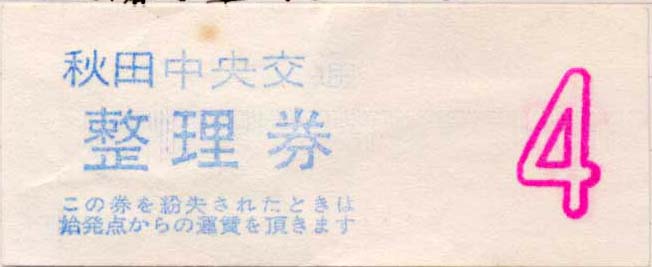 秋田中央交通
整理券
4
この券を紛失されたときは
始発点からの運賃を頂きます